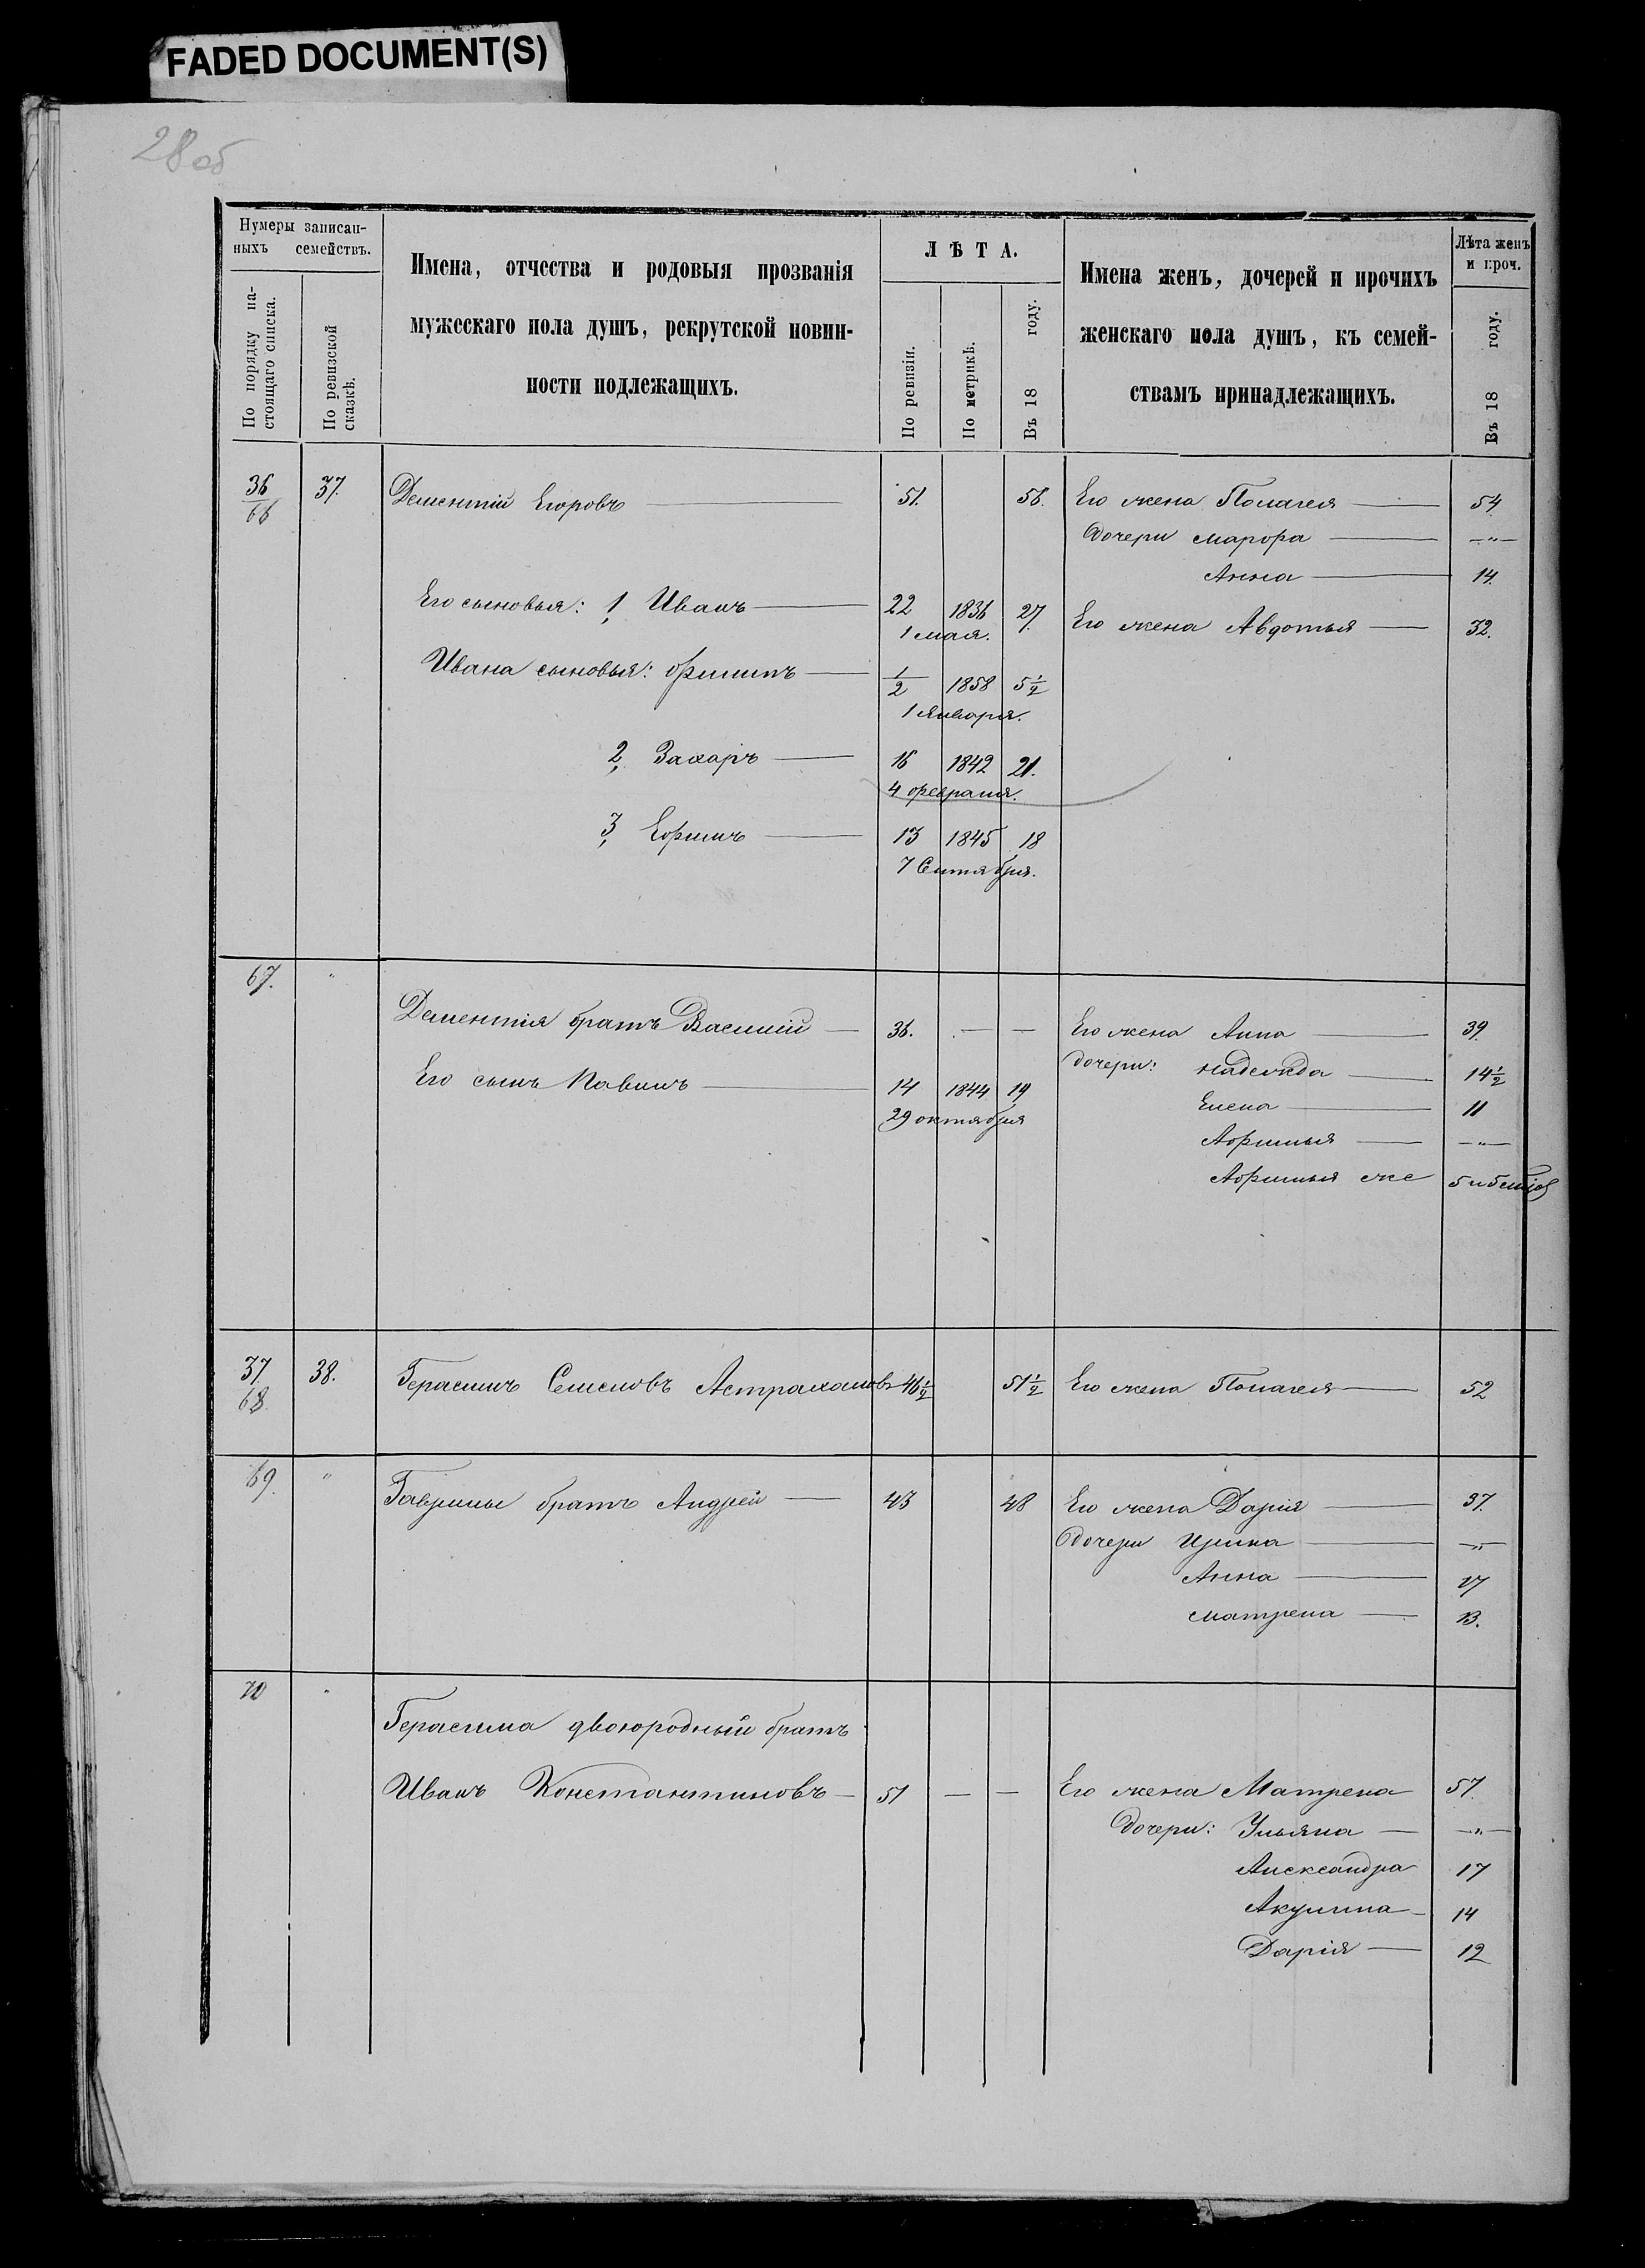 FADED DOCUMENT(S)
28 об
Нумеры записан-
ныхъ семействъ.
По порядку на-
стоящаго списка.
По ревизской
сказкѣ.
Имена, отчества и родовыя прозванія
мужескаго пола душъ, рекрутской повин-
ности подлежащихъ.
ЛѢТА.
По ревизіи.
По метрикѣ.
Въ 18 году.
Имена женъ, дочерей и прочихъ
женскаго пола душъ, къ семей-
ствамъ принадлежащихъ.
Лѣта женъ
и проч.
Въ 18 году.
36/66 37. Дементій Егоровъ — 51. 56. Его жена Пелагея — 54
Дочери Марфа — „
Анна — 14.
Его сыновья: 1, Иванъ — 22 1836 27. Его жена Авдотья — 32.
1 мая.
Ивана сыновья: Филипъ — 1/2 1858 5 1/2
1 Января.
2, Захаръ — 16 1842 21.
4 февраля.
3, Ефимъ — 13 1845 18
7 Сентября.
67. „ Дементія братъ Василій — 36. — — Его жена Анна — 39.
Его сынъ Павилъ — 14 1844 19
29 октября
дочери: Надежда — 14 1/2
Елена — 11
Афимья — „
Афимья же 5 и
37/68 38. Герасимъ Семеновъ Астрахановъ 46 1/2 51 1/2 Его жена Пелагея — 52
69. „ Гаврилы братъ Андрей — 43 48 Его жена Дарія — 37.
Дочери Ирина — „
Анна — 17
Матрена — 13.
70 „ Герасима двоюродный братъ
Иванъ Константиновъ — 51 — — Его жена Матрена 57.
Дочери: Ульяна — „
Александра 17
Акулина — 14
Дарія — 12